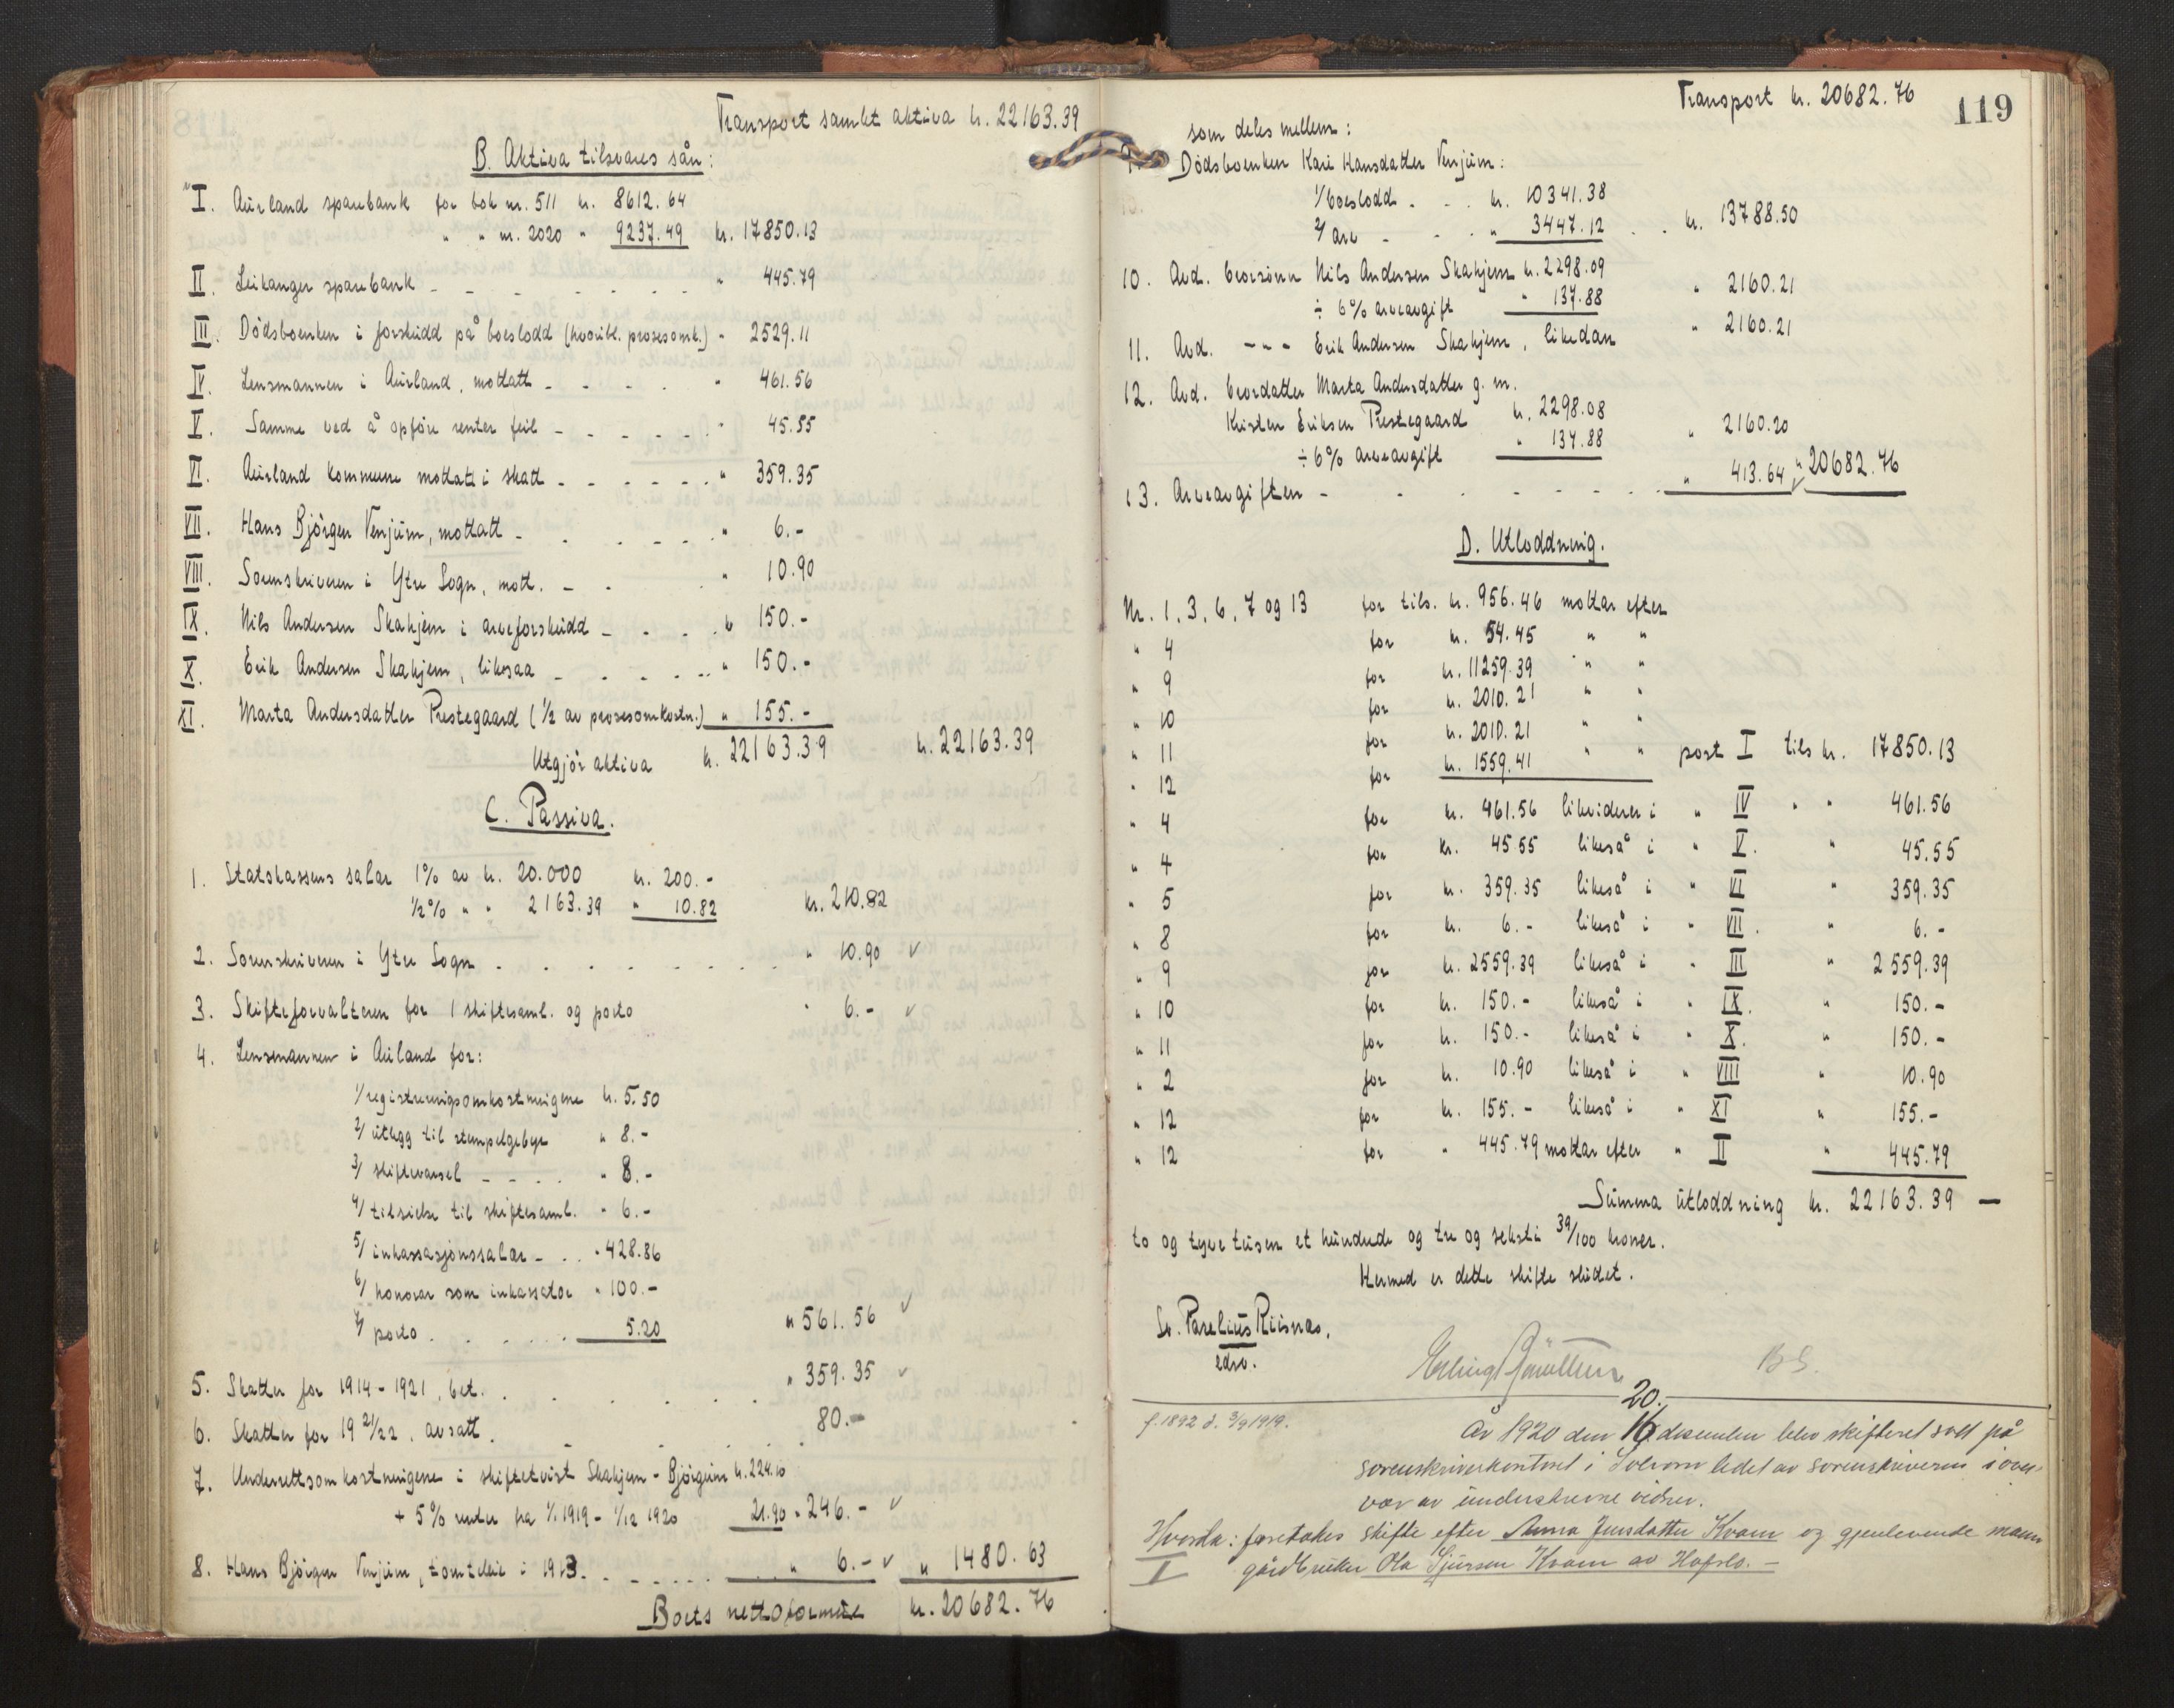 Transport samlet aktiva kr. 22163.39
B. Aktiva tilsvares sån:
I. Aurland sparebank for bok nr. 511 kr. 8612.64
" " nr. 2020 " 9237.49 kr. 17850.13
II. Leikanger sparebank - - - - - - - " 445.79
III. Dödsboenken i forskudd på boeslodd (hvoribl. prosesomk.) - 2529.11
IV. Lensmannen i Aurland, mottatt - - - - " 461.56
V. Samme ved å opföre renter feil - - - - - " 45.55
VI. Aurland kommune mottatt i skatt - - - - - " 359.35
VII. Hans Björgen Venjum, mottatt - - - - - - " 6.-
VIII. Sorenskriveren i Ytre Sogn, mott. - - " 10.90
IX. Nils Andersen Skahjem i arveforskudd - - - " 150.-
X. Erik Andersen Skahjem, likesaa - - - - - " 150.-
XI. Marta Andersdatter Prestegaard (1/2 av prosesomkostn.) " 155.-
Utgjör aktiva kr. 22163.39 kr. 22163.39
C. Passiva.
1. Statskassens salær 1% av kr. 20.000 kr. 200.-
1/2% " " 2163.39 " 10.82 kr. 210.82
2. Sorenskriveren i Ytre Sogn . . . . . . . " 10.90 ✓
3. Skifteforvalteren for 1 skiftesaml. og porto " 6.- ✓
4. Lensmannen i Aurland for:
1/ registreringsomkostningene kr. 5.50
2/ utlegg til stempelgebyr " 8.-
3/ skiftevarsel - - - - " 8.-
4/ tilsielse til skiftesaml. " 6.-
5/ inkassasjonssalær - . . " 428.86
6/ honorar som inkassator " 100.-
7/ porto . . . . . . 5.20 " 561.56 ✓
5. Skatter for 1914 - 1921, bet. . . . . . . " 359.35 ✓
6. Skatter for 19 21/22, avsatt. - - - - 80.-
7. Underrettsomkostningene i skiftetvist Skahjem - Björgum kr. 224.10
+ 5% renter fra 1/1 1919 - 1/12 1920 21.90 " 246.- ✓
8. Hans Björgen Venjum, tomteleie i 1913. - - - - - - " 6.- ✓ " 1480.63
Boets nettoformue kr. 20682.76
Transport kr. 20682.76
119
som deles mellem:
9. Dödsboenken Kari Hansdatter Venjum:
1/ boeslodd . . . kr. 10341.38
2/ arv - - - " 3447.12 . . kr. 13788.50
10. Avd. brorsönn Nils Andersen Skahjem kr. 2298.09
÷ 6% arveavgift " 137.88 " 2160.21
11. Avd. - " - Erik Andersen Skahjem, likedan " 2160.21
12. Avd. brordatter Marta Andersdatter g. m.
Kristen Eriksen Prestegaard kr. 2298.08
÷ 6% arveavgift " 137.88 " 2160.20
13. Arveavgiften - - - - - - - - " 413.64 " 20682.76
D. Utloddning.
Nr. 1, 3, 6, 7 og 13 for tils. kr. 956.46 mottar efter
" 4 for kr. 54.45 " "
" 9 for kr. 11259.39 " "
" 10 for kr. 2010.21 " "
" 11 for kr. 2010.21 " "
" 12 for kr. 1559.41 " " post I tils kr. 17850.13
" 4 for kr. 461.56 likviderer i " IV " " 461.56
" 4 for kr. 45.55 likeså i " V. " 45.55
" 5 for kr. 359.35 likeså i " VI " 359.35
" 8 for kr. 6.- likeså i " VII. " 6.-
" 9 for kr. 2559.39 likeså i " III " 2559.39
" 10 for kr. 150.- likeså i " IX. " 150.-
" 11 for kr. 150.- likeså i " X. " 150.-
" 2 for kr. 10.90 likeså i " VIII " 10.90
" 12 for kr. 155.- likeså i " XI " 155.-
" 12 for " 445.79 mottar efter " II " 445.79
Summa utloddning kr. 22163.39 —
to og tyve tusen et hundrede og tre og seksti 39/100 kroner.
Hermed er dette skifte sluttet.
Chr. Parelius Riisnæs.
edsv.
20.
f. 1892 d. 3/9 1919.
År 1920 den 16 desember blev skifterett satt på
sorenskriverkontoret i Solvorn ledet av sorenskriveren i over-
vær av underskrevne vidner.
Hvorda: foretokes skifte efter Anna Jensdatter Kvam og gjenlevende mann
I gårdbruker Ola Sjursen Kvam av Hafslo. -